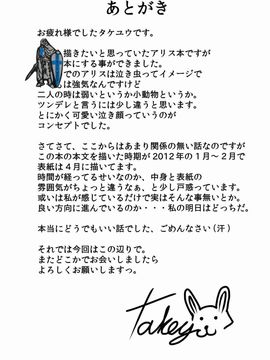 あとがき
お疲れ様でしたタケユウです。
描きたいと思っていたアリス本ですが
本にする事ができました。
でのアリスは泣き虫ってイメージで
は強気なんですけど
二人の時は弱いというか小動物というか。
ツンデレと言うには少し違うと思います。
とにかく可愛い泣き顔っていうのが
コンセプトでした。
さてさて、ここからはあまり関係の無い話なのですが
この本の本文を描いた時期が2012年の1月～2月で
表紙は4月に描いてます。
時間が経ってるせいなのか、中身と表紙の
雰囲気がちょっと違うなぁ、と少し戸惑っています。
或いは私が感じているだけで実はそんな事無いとか。
良い方向に進んでいるのか・・・私の明日はどっちだ。
本当にどうでもいい話でした、ごめんなさい(汗)
それでは今回はこの辺りで。
またどこかでお会いしましたら
よろしくお願いしますっ。
Takeyu